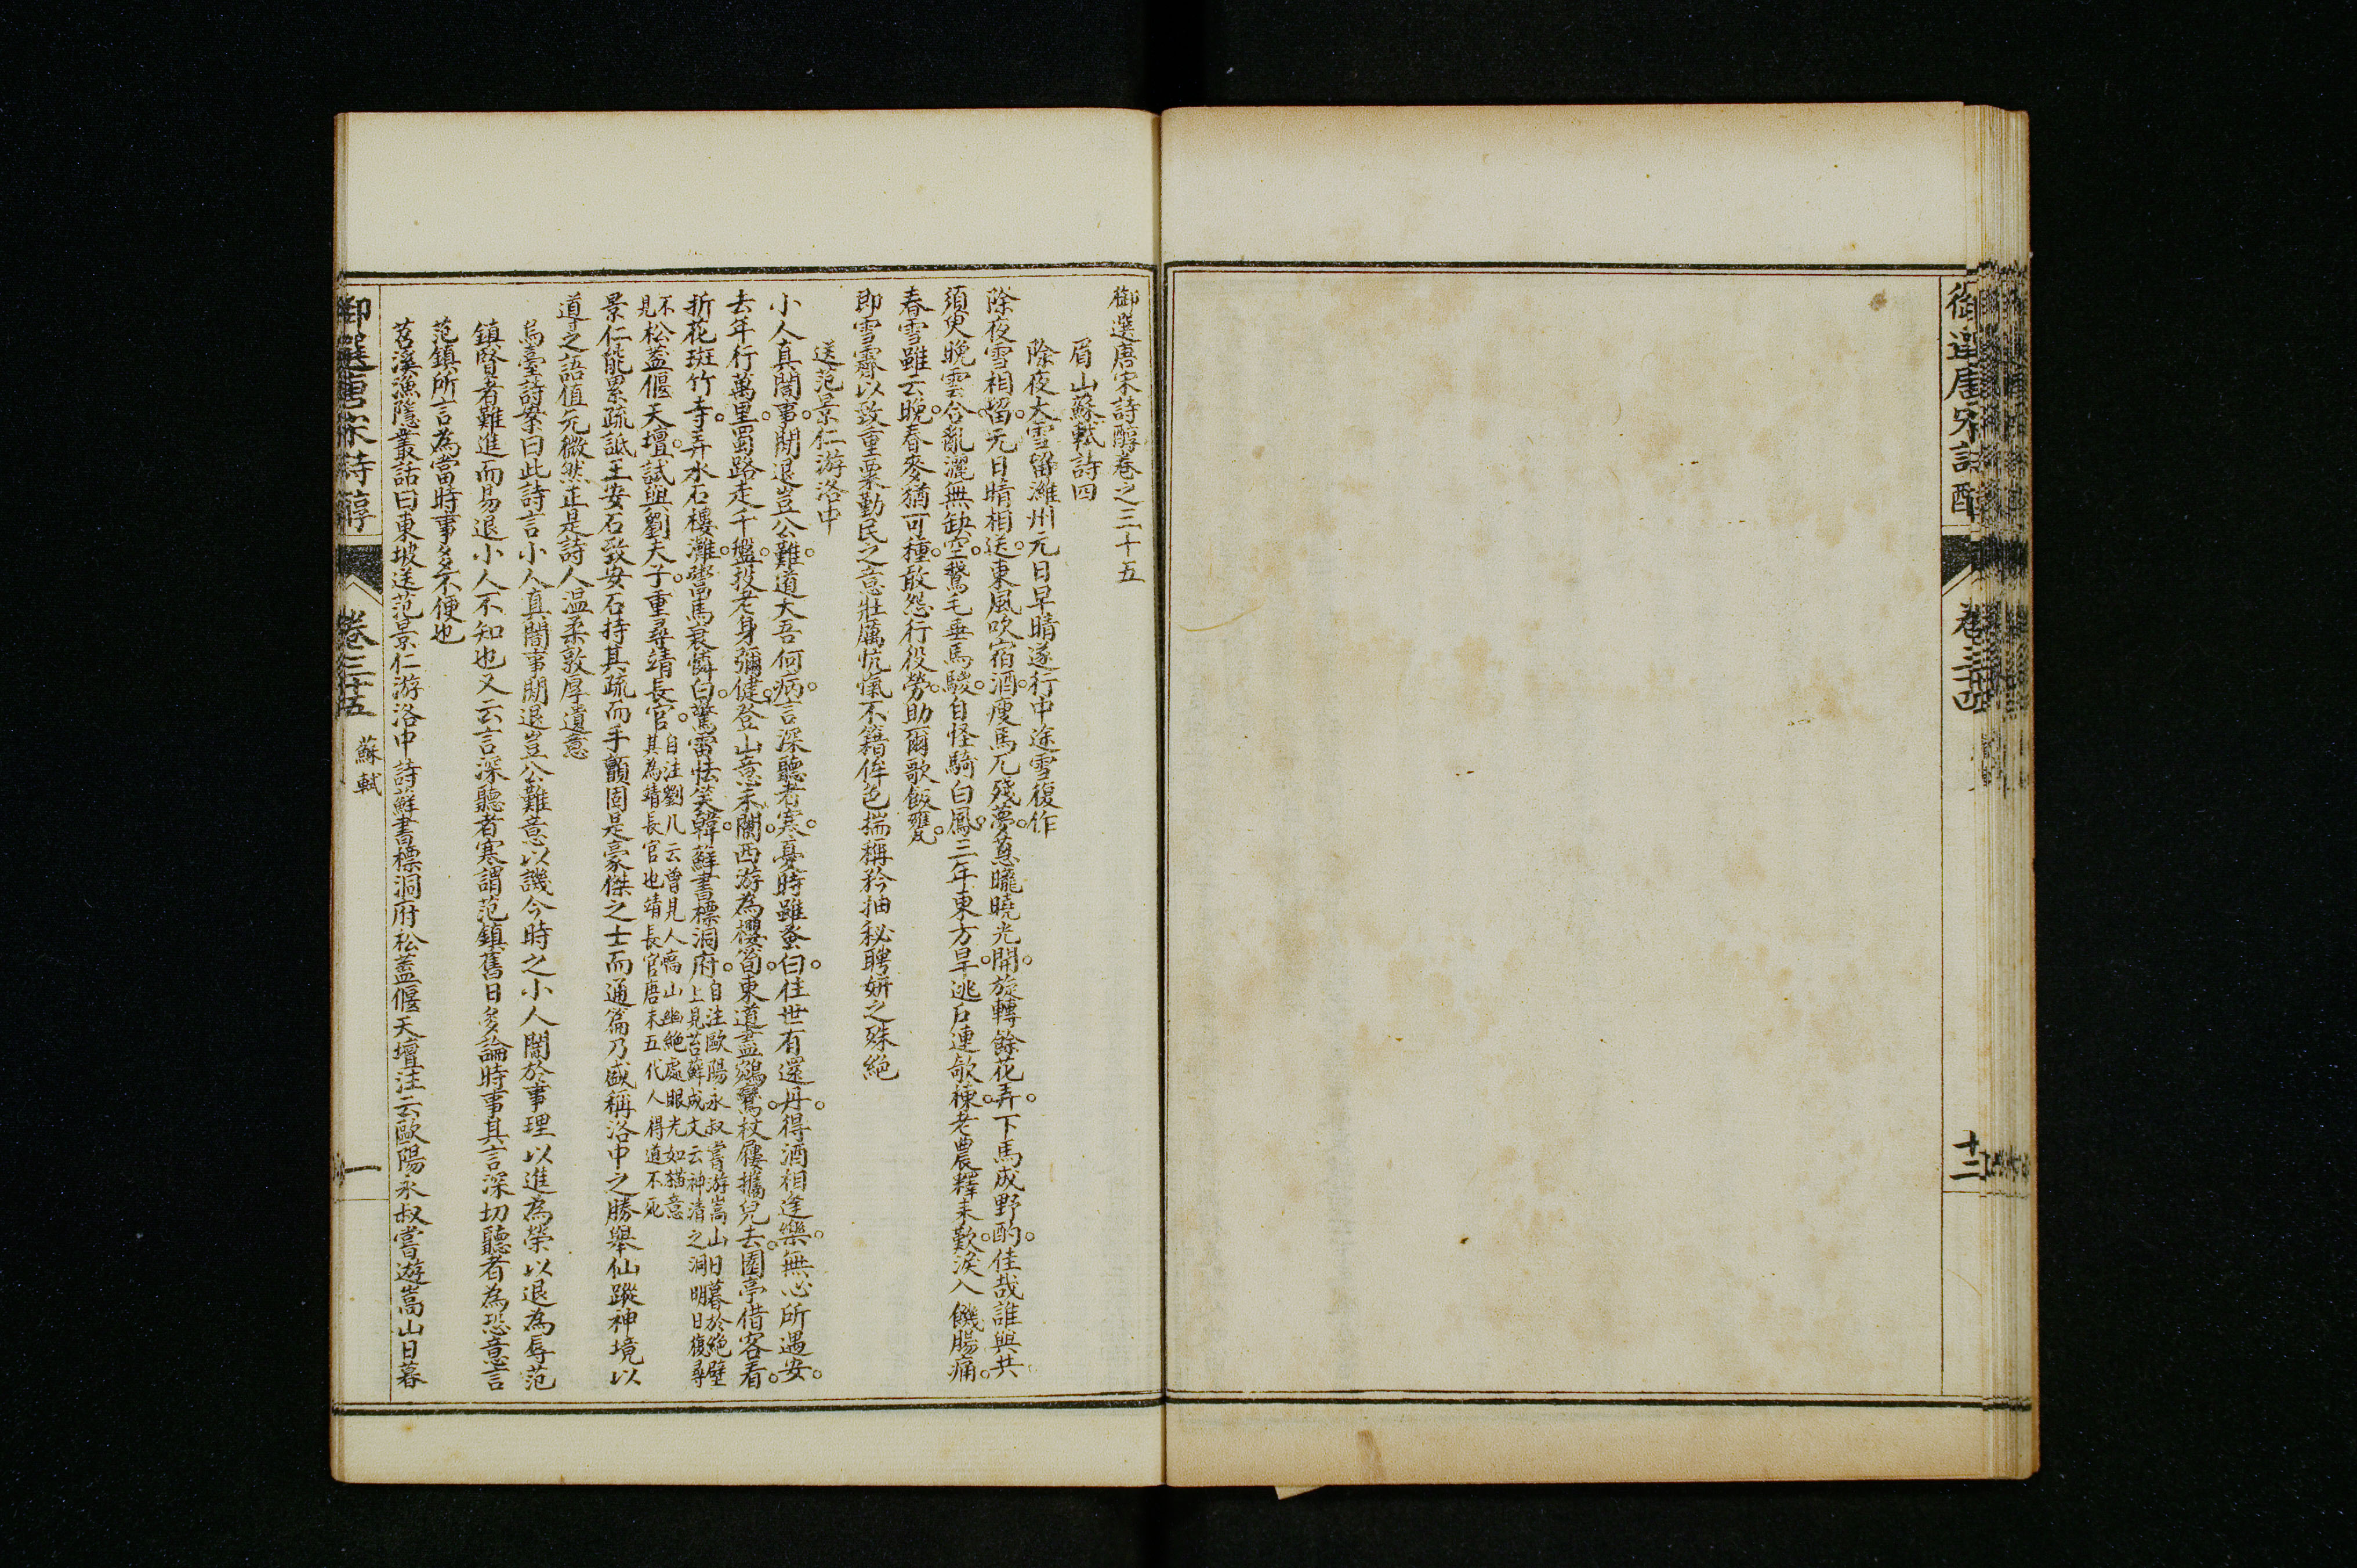 御選唐宋詩醇
卷三十四
十二
御選唐宋詩醇卷之三十五
眉山蘇軾詩四
除夜大雪留濰州元日早晴遂行中途雪復作
除夜雪相留元日晴相送東風吹宿酒瘦馬兀殘夢蔥曨曉光開旋轉餘花弄下馬成野酌佳哉誰與共
須臾晚雲合亂灑無缺空鵞毛垂馬駿自怪騎白鳳三年東方旱逃戶連欹棟老農釋耒歎淚入饑腸痛
春雪雖云晚春麥猶可種敢怨行役勞助爾歌飯甕
即雪霽以致重粟勤民之意壯厲忼愾不籍侔色揣稱矜抽秘聘妍之殊絶
送范景仁游洛中
小人真闇事閒退豈公難道大吾何病言深聽者寒憂時雖蚤白住世有還丹得酒相逢樂無心所遇安
去年行萬里蜀路走千盤投老身彌健登山意未闌西游為櫻筍東道盡鵷鸞杖屨攜兒去園亭借客看
折花斑竹寺弄水石樓灘鬻馬衰憐白驚雷怯笑韓蘚書標洞府自注歐陽永叔嘗游嵩山日暮於絶壁上見苔蘚成文云神清之洞明日復尋不見
松蓋偃天壇試與劉夫子重尋靖長官自注劉几云曾見人嵩山幽絶處眼光如猫意其為靖長官也靖長官唐末五代人得道不死
景仁能累疏詆王安石致安石持其疏而手顫固是豪傑之士而通篇乃盛稱洛中之勝舉仙蹤神境以
道之語值元微然正是詩人温柔敦厚遺意
烏臺詩案曰此詩言小人真闇事閒退豈公難意以譏今時之小人闇於事理以進為榮以退為辱范
鎮賢者難進而易退小人不知也又云言深聽者寒謂范鎮舊日多論時事其言深切聽者為恐意言
范鎮所言為當時事多不便也
苕溪漁隱叢話曰東坡送范景仁游洛中詩蘚書標洞府松蓋偃天壇注云歐陽永叔嘗遊嵩山日暮
御選唐宋詩醇
卷三十五
蘇軾
一